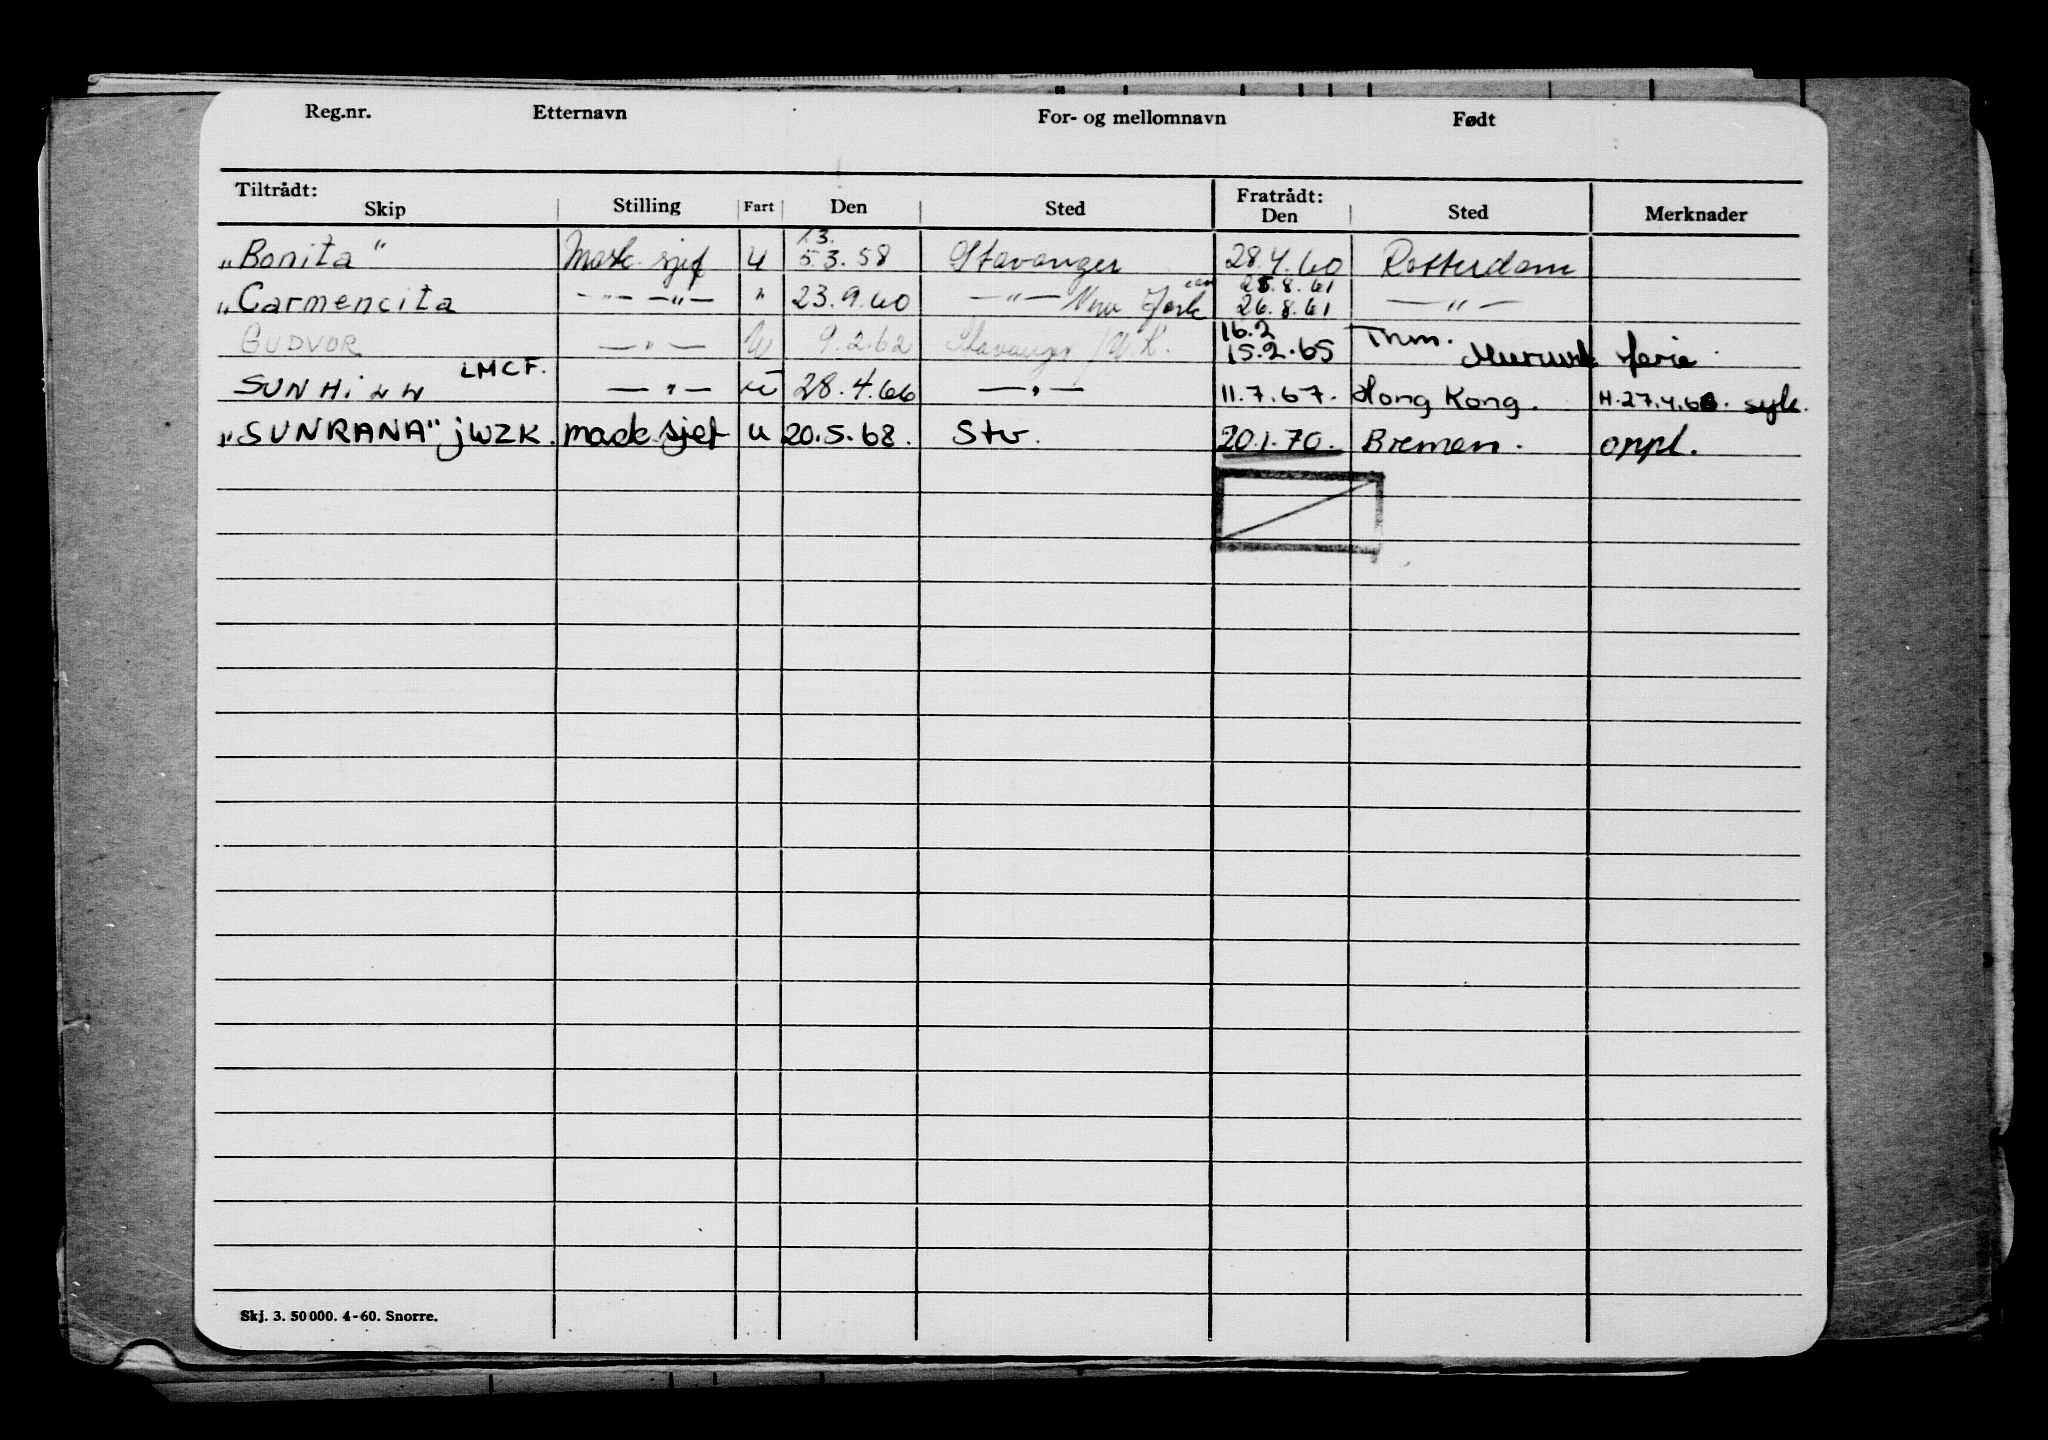 Reg.nr. Etternavn For- og mellomnavn Født
Tiltrådt: Skip Stilling Fart Den Sted Fratrådt: Den Sted Merknader
13.
„Bonita" Mask sjef u 5.3.58 Stavanger 28.4.60 Rotterdam
25.8.61
„Carmencita —"— —"— " 23.9.60 —"— New York 26.8.61 —"—
16.2
GUDVOR —"— U 9.2.62 Stavanger 15.2.65 Thm. ferie
LMCF.
SUN —"— u 28.4.66 —"— 11.7.67. Hong Kong. H.27.4.68. syk.
„SUNRANA" JWZK. mask sjef u 20.5.68. Stv. 20.1.70. Bremen. oppl.
Skj. 3. 50 000. 4-60. Snorre.